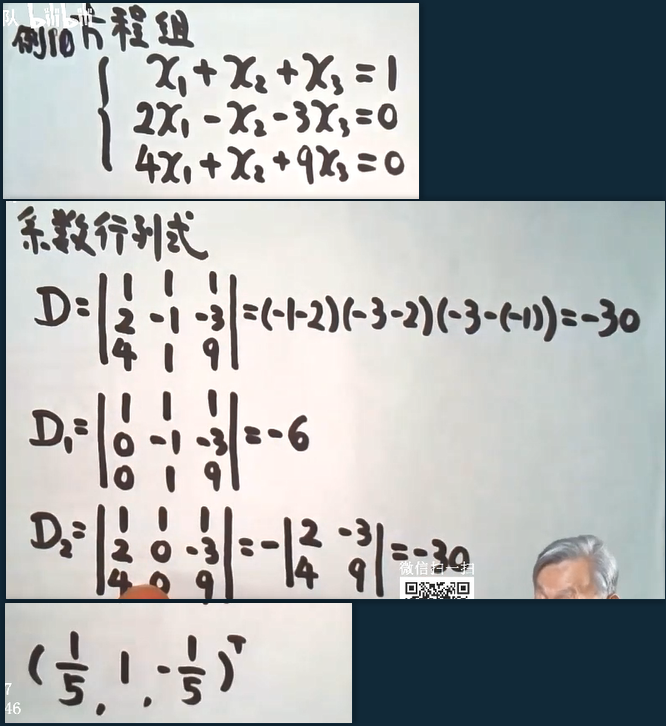 队 bilibili
例10 方程组
x₁+x₂+x₃=1
2x₁-x₂-3x₃=0
4x₁+x₂+9x₃=0
系数行列式
D=|1 1 1
2 -1 -3
4 1 9|=(-1-2)(-3-2)(-3-(-1))=-30
D₁=|1 1 1
0 -1 -3
0 1 9|=-6
D₂=|1 1 1
2 0 -3
4 0 9|=-|2 -3
4 9|=-30
微信扫一扫
(1/5, 1, -1/5)ᵀ
7
46